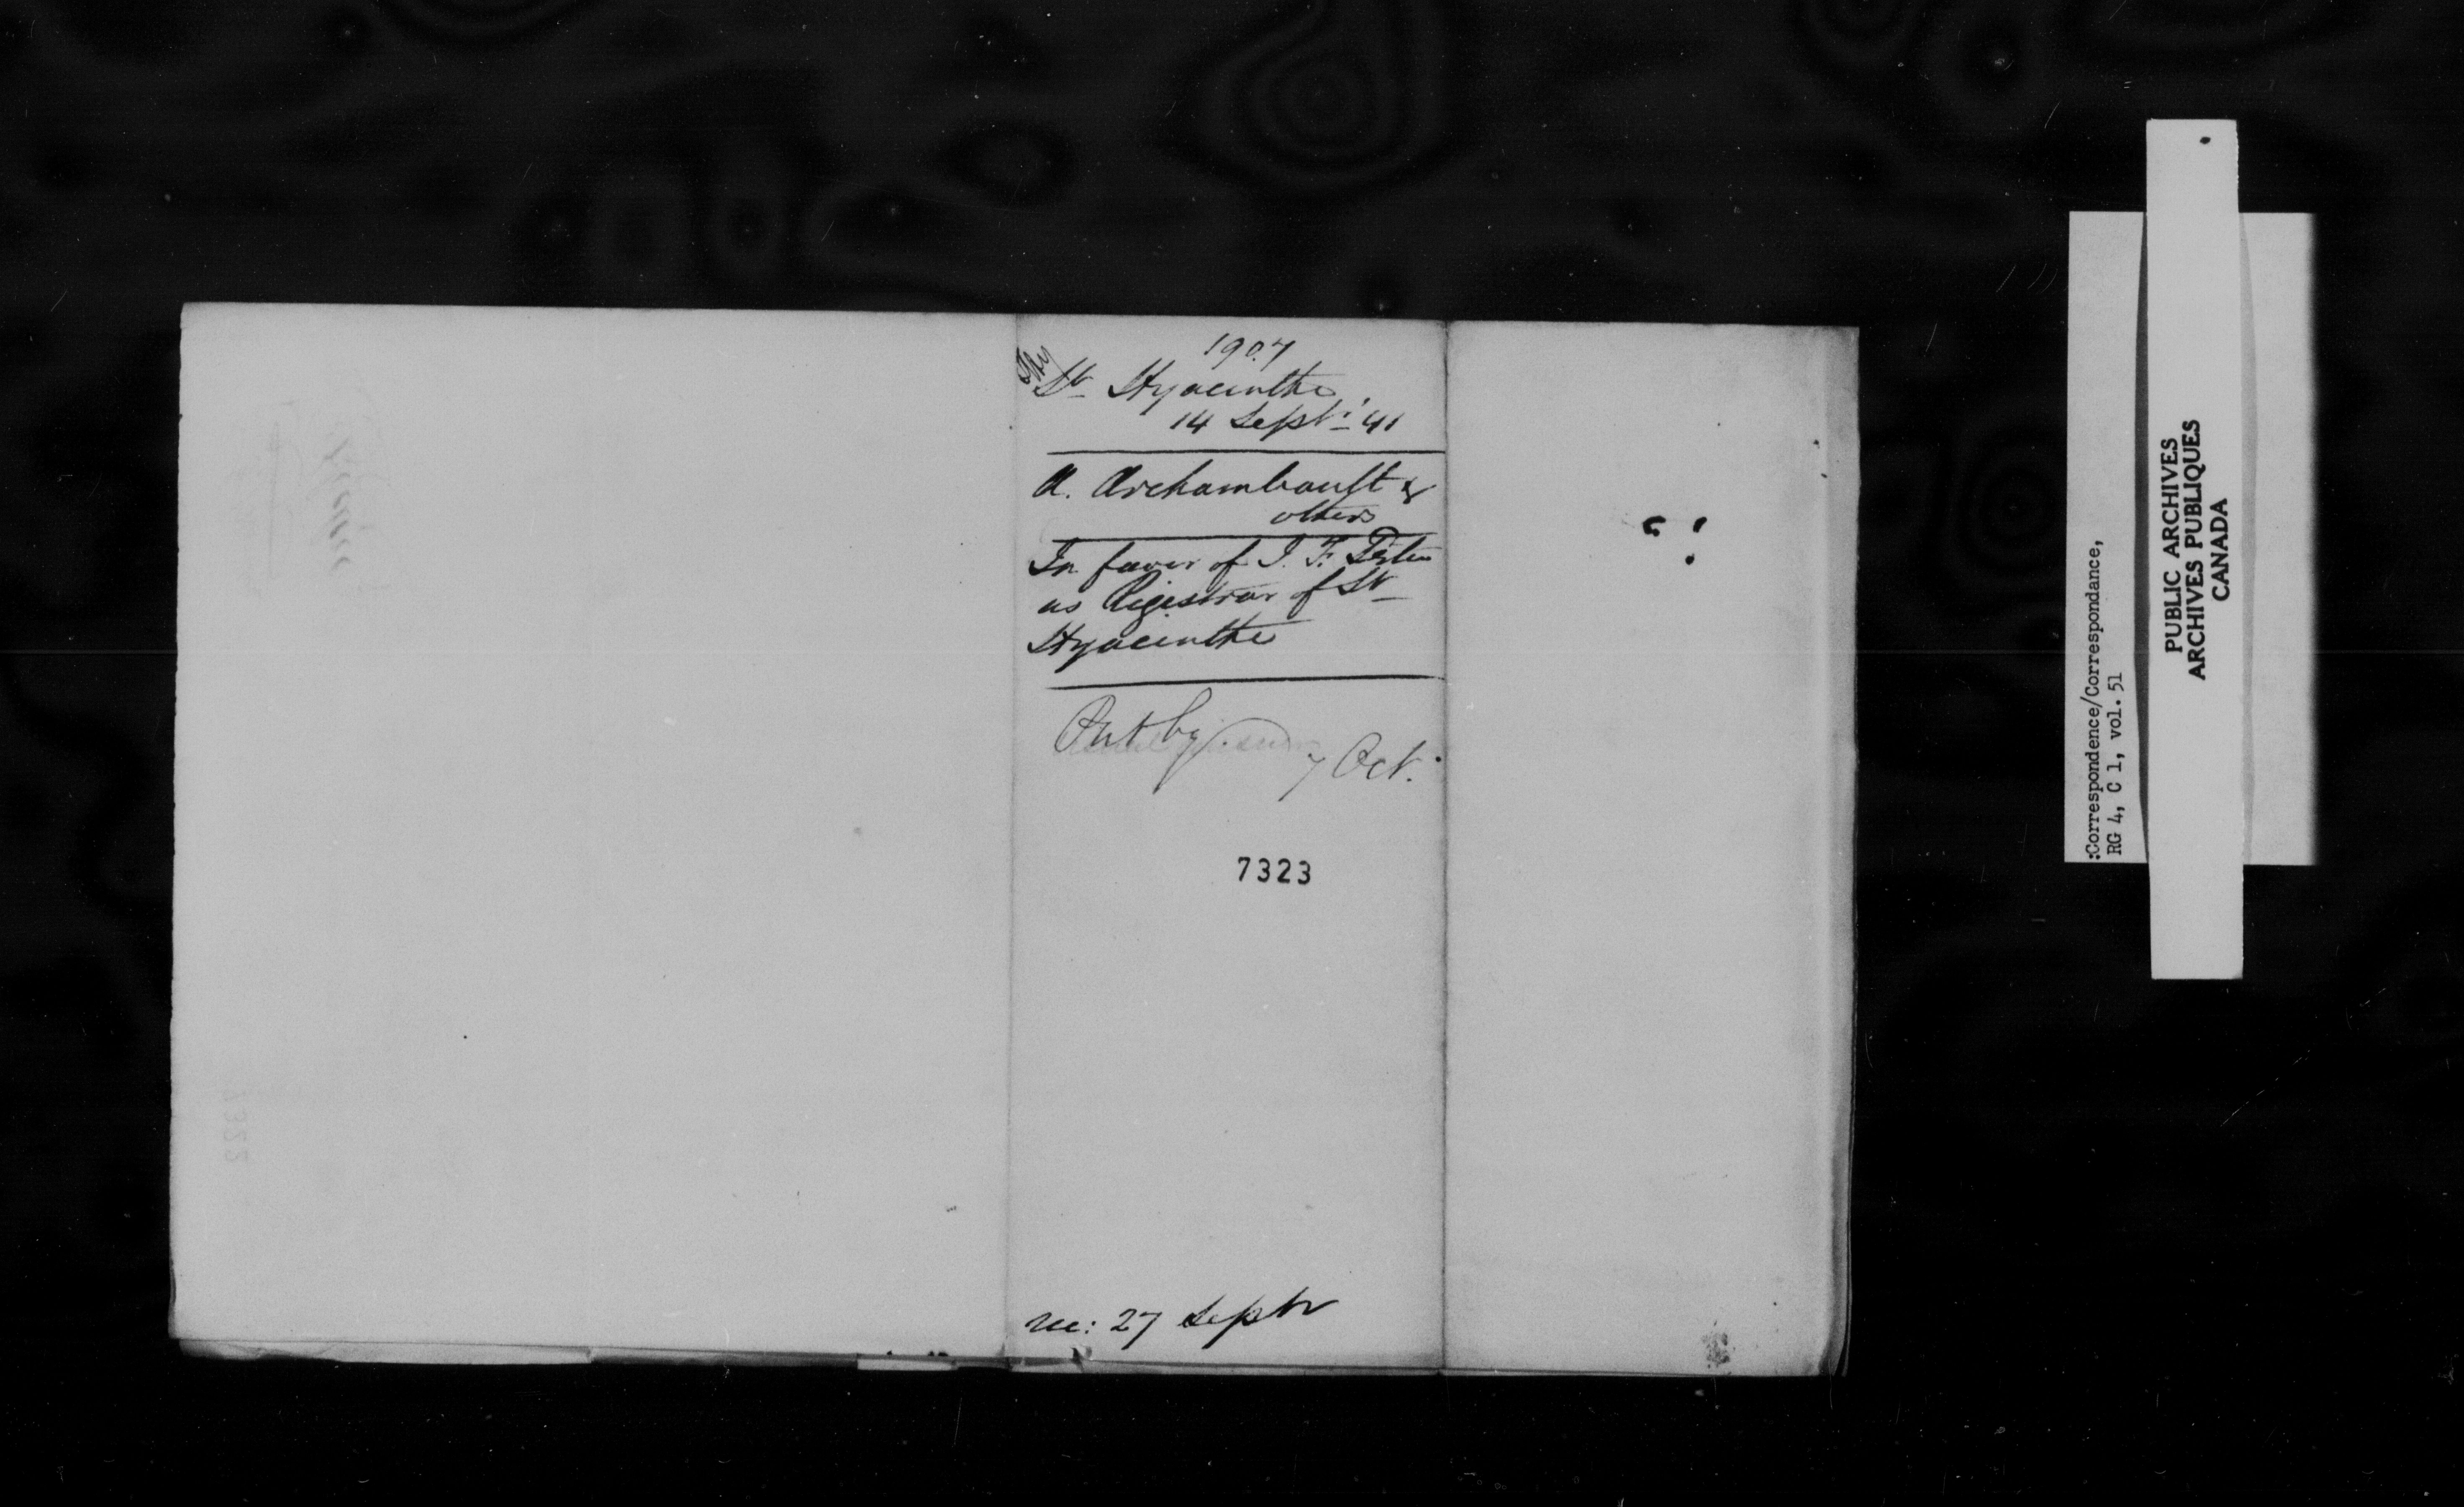 1907
St Hyacinthe
14 Septr 41
A. Archambault &
others
In favor of J. F. Têtu
as Registrar of St
Hyacinthe
Put by. 7 Oct.
7323
rec: 27 Septr
:Correspondence/Correspondance,
RG 4, C 1, vol. 51
PUBLIC ARCHIVES
ARCHIVES PUBLIQUES
CANADA